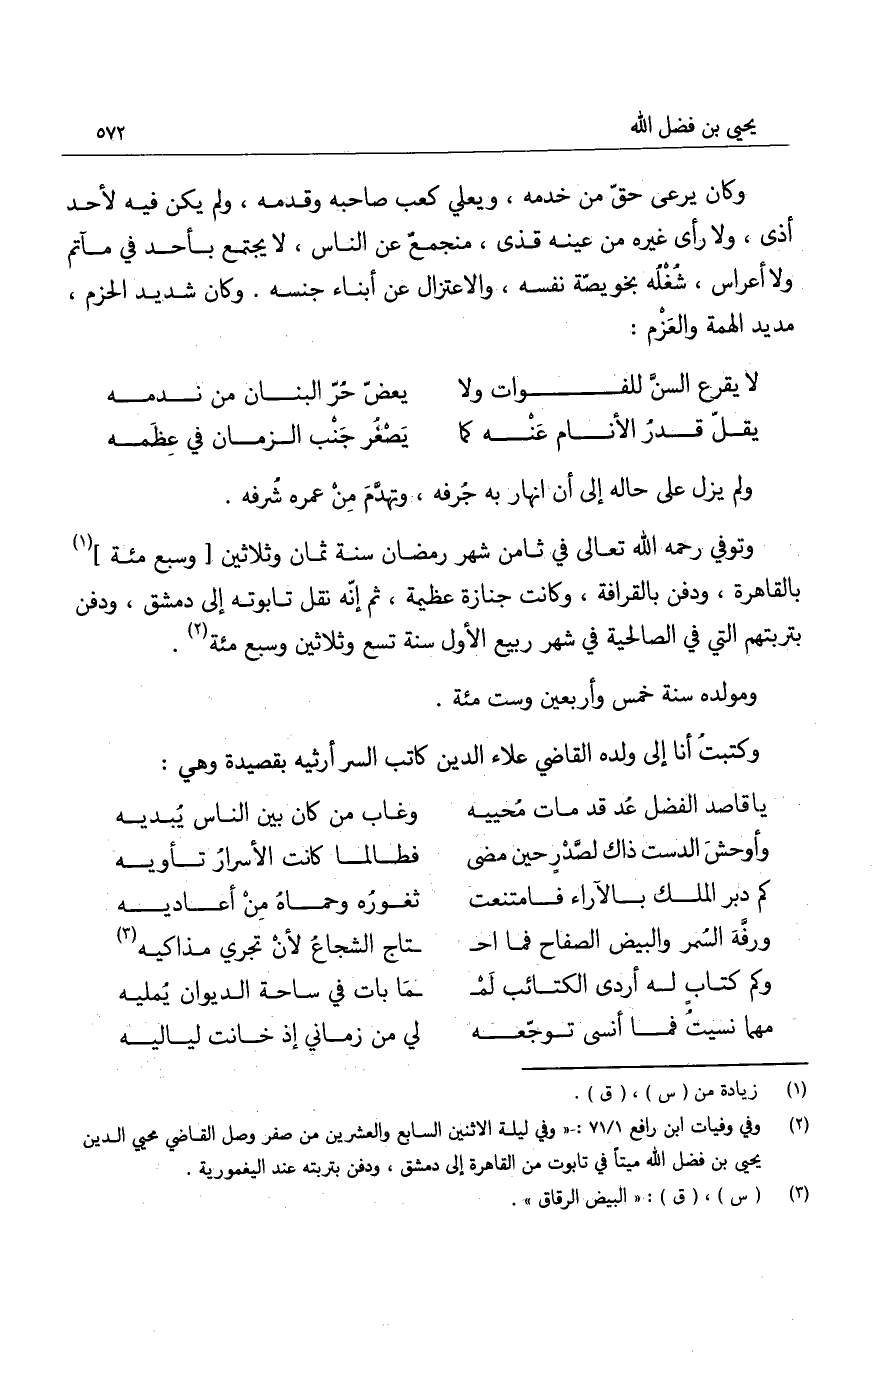 يحيى بن فضل الله ٥٧٢
وكان يرعى حقّ من خدمه ، ويعلي كعب صاحبه وقدمه ، ولم يكن فيه لأحد
أذى ، ولا رأى غيره من عينه قذى ، منجمعٌ عن الناس ، لا يجتمع بأحد في مآتم
ولا أعراس ، شُغْلُه بخويصّة نفسه ، والاعتزال عن أبناء جنسه . وكان شديد الحزم ،
مديد الهمة والعَزْم :
لا يقرع السنَّ للفوات ولا يعضّ حُرّ البنان من ندمه
يقلّ قدرُ الأنام عَنْه كما يَصْغُر جَنْب الزمان في عِظَمه
ولم يزل على حاله إلى أن انهار به جُرفه ، وتهدَّمَ مِنْ عمره شُرفه .
وتوفي رحمه الله تعالى في ثامن شهر رمضان سنة ثمان وثلاثين [ وسبع مئة ](١)
بالقاهرة ، ودفن بالقرافة ، وكانت جنازة عظيمة ، ثم إنّه نقل تابوته إلى دمشق ، ودفن
بتربتهم التي في الصالحية في شهر ربيع الأول سنة تسع وثلاثين وسبع مئة(٢) .
ومولده سنة خمس وأربعين وست مئة .
وكتبتُ أنا إلى ولده القاضي علاء الدين كاتب السر أرثيه بقصيدة وهي :
يا قاصد الفضل عُد قد مات مُحييه وغاب من كان بين الناس يُبديه
وأوحشَ الدست ذاك لصَّدْرِ حين مضى فطالما كانت الأسرارُ تأويه
كم دبر الملك بالآراء فامتنعت ثغورُه وحماهُ مِنْ أعاديه
ورفَّهَ السُمر والبيض الصفاح فما احـ ـتاج الشجاعُ لأنْ تجري مذاكيه(٣)
وكم كتابٍ له أردى الكتائب لَمْـ ـمَا بات في ساحة الديوان يُمليه
مهما نسيتُ فما أنسى توجّعه لي من زماني إذ خانت لياليه
(١) زيادة من ( س ) ، ( ق ) .
(٢) وفي وفيات ابن رافع ٧١/١ :- « وفي ليلة الاثنين السابع والعشرين من صفر وصل القاضي محيي الدين
يحيى بن فضل الله ميتاً في تابوت من القاهرة إلى دمشق ، ودفن بتربته عند اليغمورية .
(٣) ( س ) ، ( ق ) : « البيض الرقاق » .